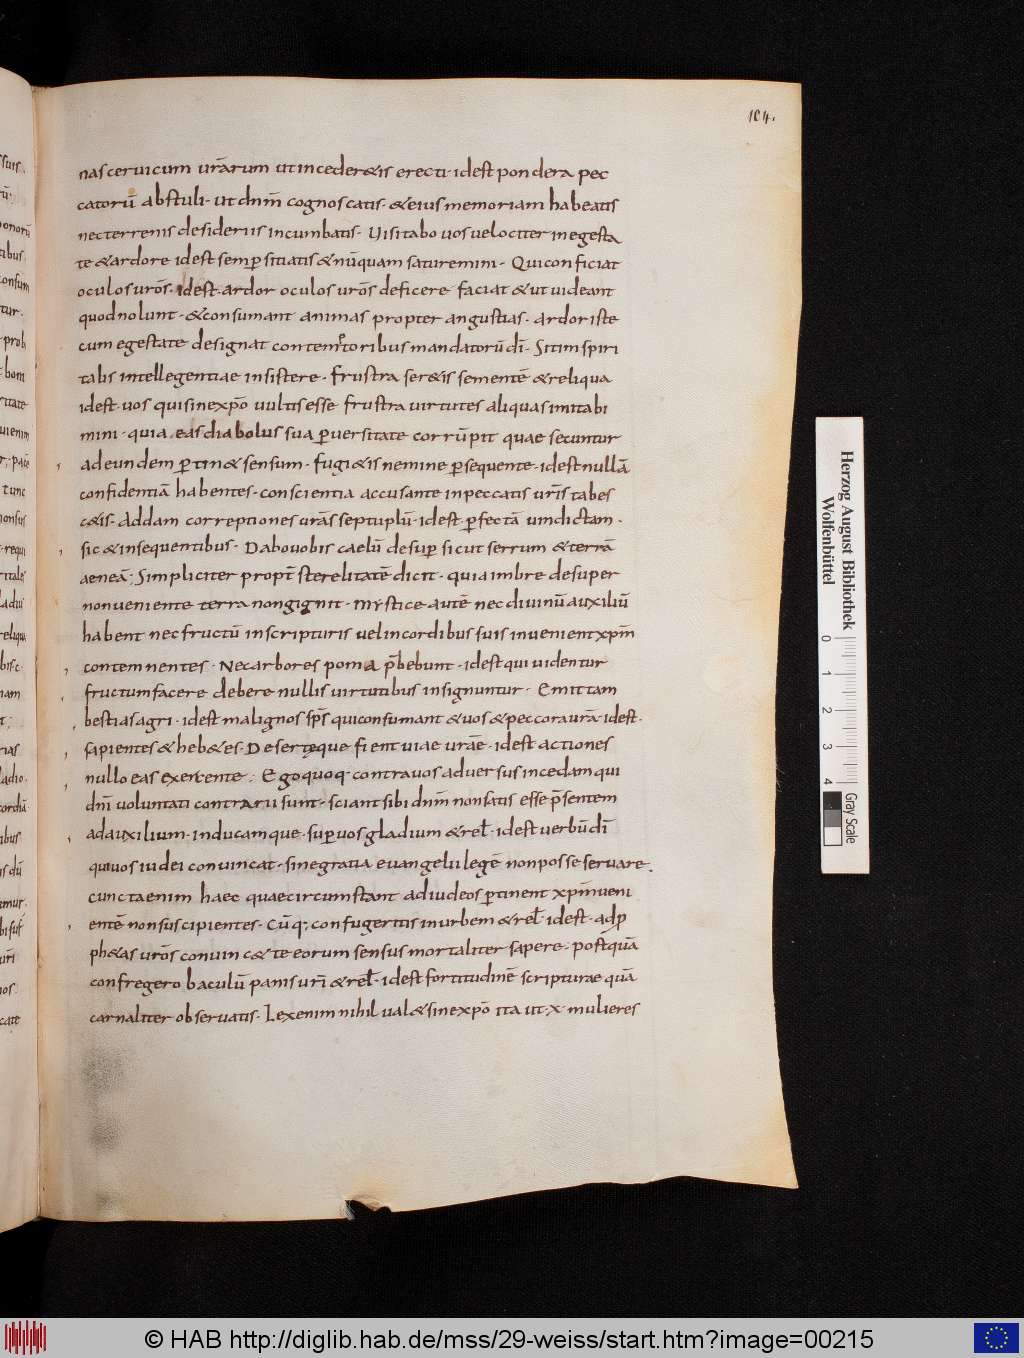 104.
nas ceruicum ur̄arum ut inceder&is erecti · idest pondera pec
catorū abstuli · ut dnm̄ cognoscatis · & eius memoriam habeatis
nec terrenis desideriis incumbatis · Uisitabo uos uelociter in egesta
te & ardore idest semp̱ sitiatis & nūquam saturemini · Qui conficiat
oculos urōs · idest · ardor oculos urōs deficere faciat & ut uideant
quod nolunt · & consumant animas propter angustias · ardor iste
cum egestate designat contemptoribus mandatorū dī · Sitim spiri
talis intellegentiae insistere · Frustra ser&is sementē & reliqua
idest · uos qui sine xp̄o uultis esse frustra uirtutes aliquas imitabi
mini · quia eas diabolus sua p̱uersitate corrūpit quae secuntur
ad eundem p̱tin& sensum · fugi&is nemine p̱sequente · idest nullā
confidentiā habentes · conscientia accusante in peccatis urīs tabes
c&is · Addam correptiones urās septuplū · idest · p̱fectā uindictam ·
sic & in sequentibus · Dabo uobis caelū desup̱ sicut ferrum & terrā
aeneā ; Simpliciter propt̄ sterelitatē dicit · quia imbre desuper
non ueniente terra non gignit · mystice autē nec diuinū auxiliū
habent nec fructū in scripturis uel in cordibus suis inuenient xp̄m
contemnentes · Nec arbores poma p̄bebunt · idest qui uidentur
fructum facere debere nullis uirtutibus insignuntur · Emittam
bestias agri · idest malignos sp̄s qui consumant & uos & peccora urā · idest ·
sapientes & heb&es · Deserteque fient uiae urāe · idest actiones
nullo eas exercente ; Ego quoq; contra uos aduersus incedam qui
dnī uoluntati contrarii sunt · sciant sibi dnm̄ non satis esse p̄sentem
ad auxilium · inducamque · sup̱ uos gladium & rel̄ · idest uerbū dī
qui uos iudei conuincat · sine gratia euangelii legē non posse seruare ·
cuncta enim haec quae circumstant ad iudeos p̱tinent xp̄m ueni
entē non suscipientes · Cūq; confugeritis in urbem & rel̄ · idest · ad p̱
ph&as urōs conuinc& te eorum sensus mortaliter sapere ; postquā
confregero baculū panis urī & rel̄ · idest fortitudinē scripturae quā
carnaliter obseruatis · Lex enim nihil ual& sine xp̄o ita ut · x · mulieres
Herzog August Bibliothek
Wolfenbüttel
0 1 2 3 4
Gray Scale
© HAB http://diglib.hab.de/mss/29-weiss/start.htm?image=00215